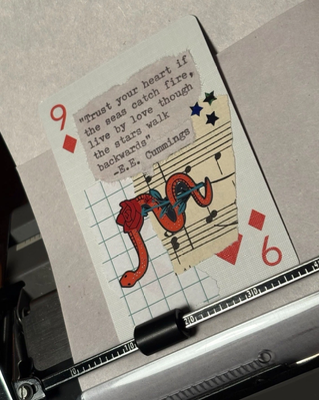 9
"Trust your heart if
the seas catch fire,
live by love though
the stars walk
backwards"
-E.E. Cummings
9